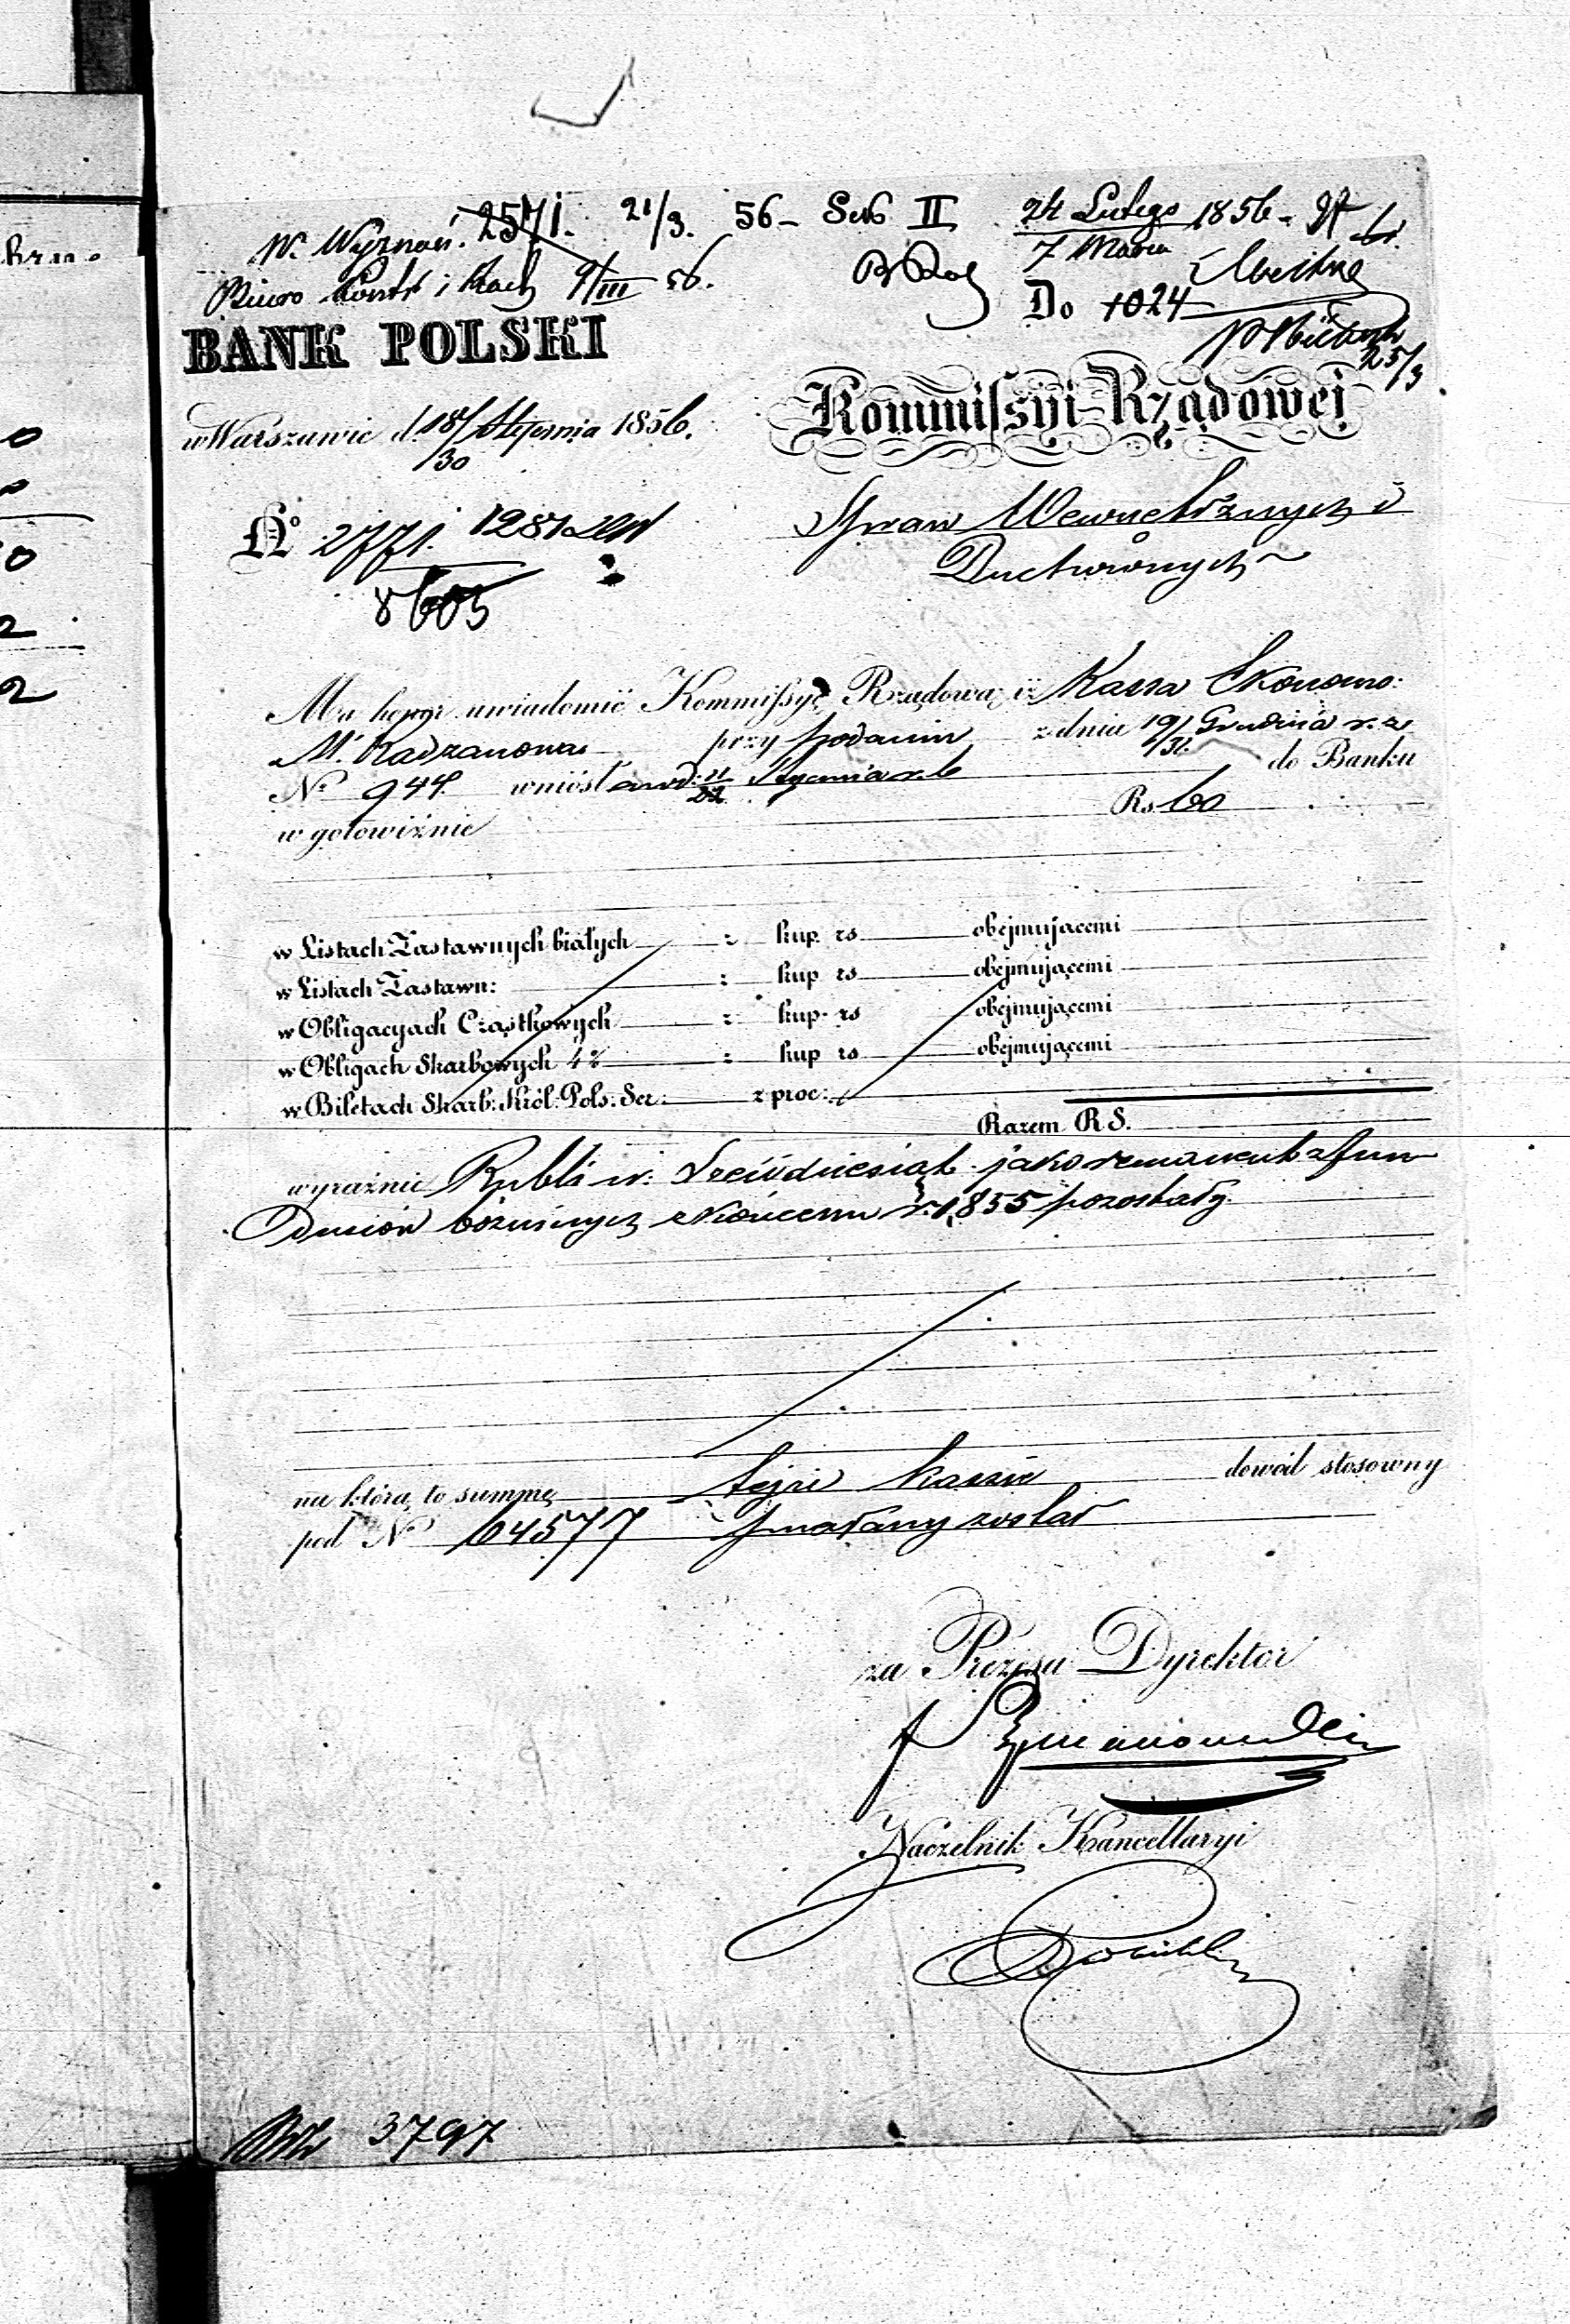 W. Wyznań. 2571. 21/3. 56 - Sek II 24 Lutego 1856
7 Marca
Biuro Kontr i Rach 9/III 56.
Do 1024
25/3
BANK POLSKI
Kommissyi Rządowej
w Warszawie d. 18/30 Stycznia 1856.
Spraw Wewnętrznych i
Duchownych
No 2771. 1281
8603
Ma honor uwiadomić Kommissyę Rządową iż Kassa Ekonomi:
M. Radzanowa przy podaniu z dnia 19/31 Grudnia r. z.
No 944 wniósł a w d: 11/23 Stycznia r. b do Banku
w gotowiźnie Rs 60
w Listach Zastawnych białych : kup. rs obejmującemi
w Listach Zastawn: : kup rs obejmującemi
w Obligacyach Cząstkowych : kup. rs obejmującemi
w Obligach Skarbowych 4% : kup rs obejmującemi
w Biletach Skarb: Król: Pols: Ser: z proc:
Razem R S.
wyraźnie Rubli sr. Sześćdziesiąt jako remanent z fun
duszów bożniczych z końcem r. 1855 pozostały.
na którą to summę tejże kassie dowód stosowny
pod No 64577 został
za Prezesa Dyrektor
Naczelnik Kancellaryi
3797